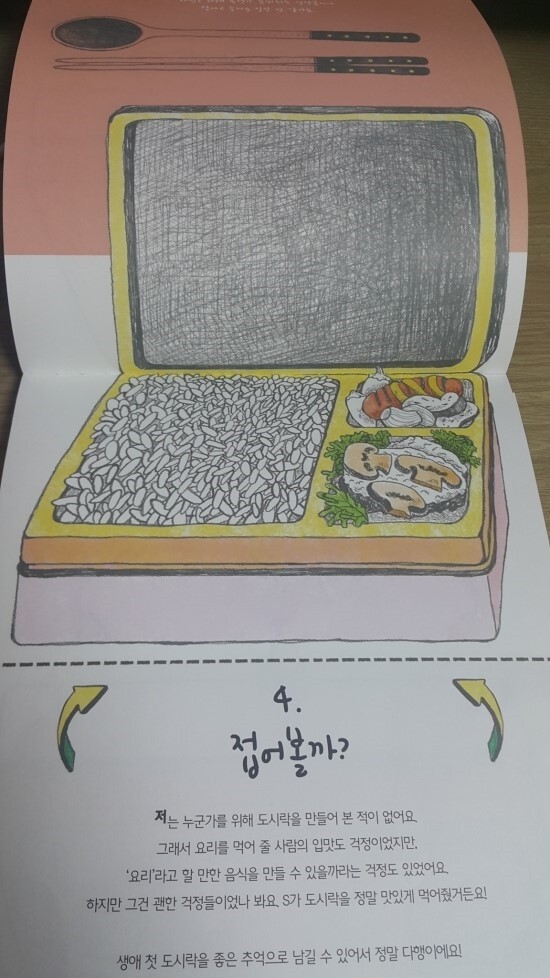 4.
접어볼까?
저는 누군가를 위해 도시락을 만들어 본 적이 없어요.
그래서 요리를 먹어 줄 사람의 입맛도 걱정이었지만,
‘요리’라고 할 만한 음식을 만들 수 있을까라는 걱정도 있었어요.
하지만 그건 괜한 걱정들이었나 봐요. S가 도시락을 정말 맛있게 먹어줬거든요!
생애 첫 도시락을 좋은 추억으로 남길 수 있어서 정말 다행이에요!